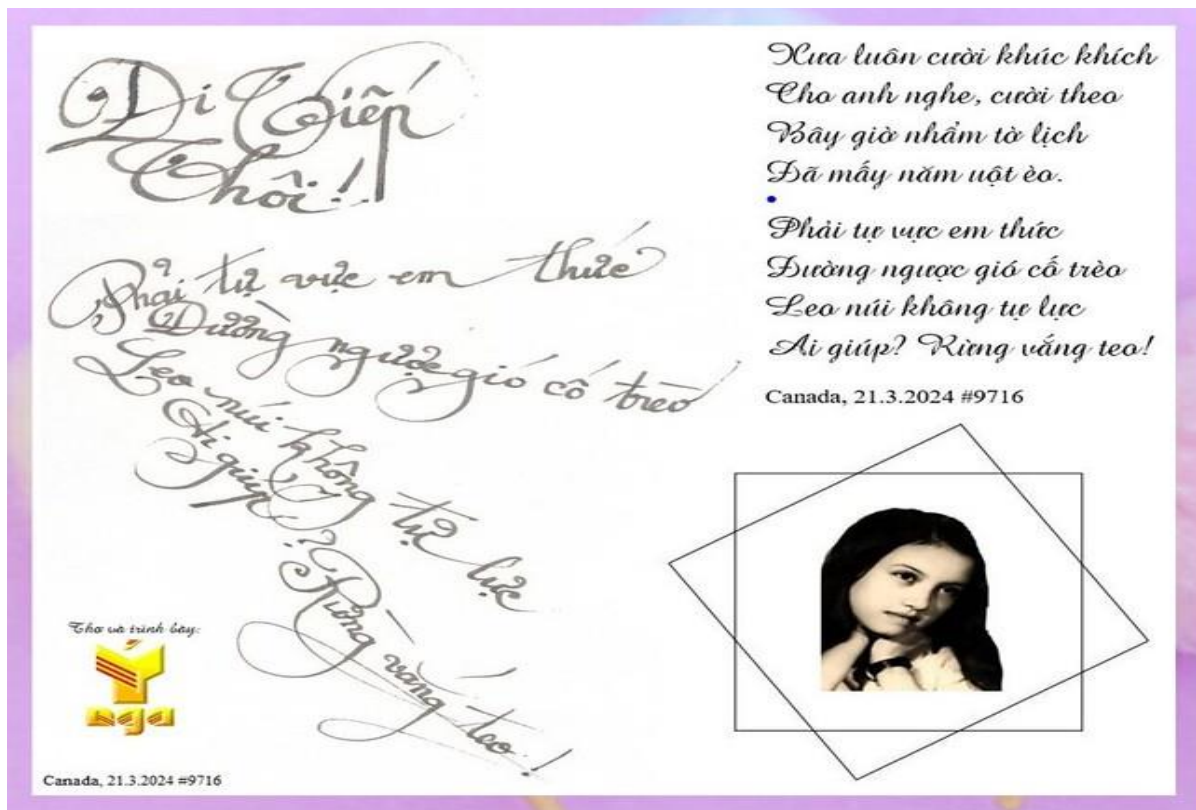 Đi Tiếp
Thôi!
Phải tự vực em thức
Đường ngược gió cố trèo
Leo núi không tự lực
Ai giúp? Rừng vắng teo!
Thơ và trình bày:
Ý
nga
Canada, 21.3.2024 #9716
Xưa luôn cười khúc khích
Cho anh nghe, cười theo
Bây giờ nhẩm tờ lịch
Đã mấy năm uột èo.
Phải tự vực em thức
Đường ngược gió cố trèo
Leo núi không tự lực
Ai giúp? Rừng vắng teo!
Canada, 21.3.2024 #9716